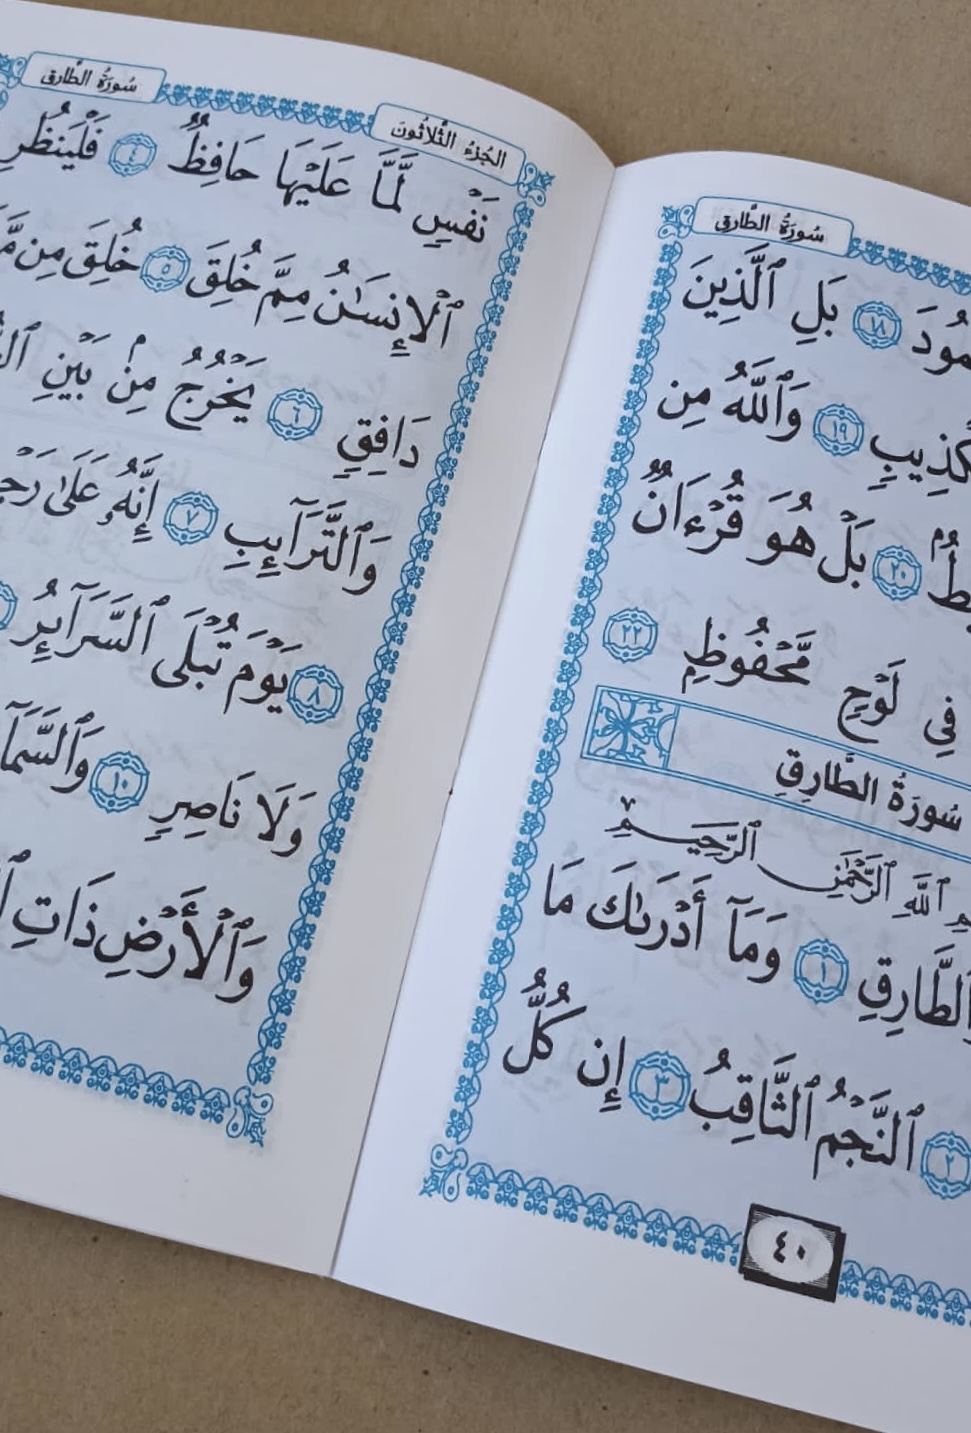 سُورَةُ الطَّارِقِ
بَلِ ٱلَّذِينَ ١٨
وَٱللَّهُ مِن ١٩
بَلْ هُوَ قُرْءَانٌ ٢٠
فِى لَوْحٍ مَّحْفُوظٍ ٢٢
سُورَةُ الطَّارِقِ
ٱللَّهِ ٱلرَّحْمَٰنِ ٱلرَّحِيمِ
ٱلطَّارِقِ ١ وَمَآ أَدْرَىٰكَ مَا
٢ ٱلنَّجْمُ ٱلثَّاقِبُ ٣ إِن كُلُّ
٤٠
الجُزءُ الثَّلَاثُونَ
سُورَةُ الطَّارِقِ
نَفْسٍ لَّمَّا عَلَيْهَا حَافِظٌ ٤ فَلْيَنظُرِ
ٱلْإِنسَٰنُ مِمَّ خُلِقَ ٥ خُلِقَ مِن
دَافِقٍ ٦ يَخْرُجُ مِنۢ بَيْنِ
وَٱلتَّرَآئِبِ ٧ إِنَّهُۥ عَلَىٰ
٨ يَوْمَ تُبْلَى ٱلسَّرَآئِرُ
وَلَا نَاصِرٍ ١٠
وَٱلْأَرْضِ ذَاتِ